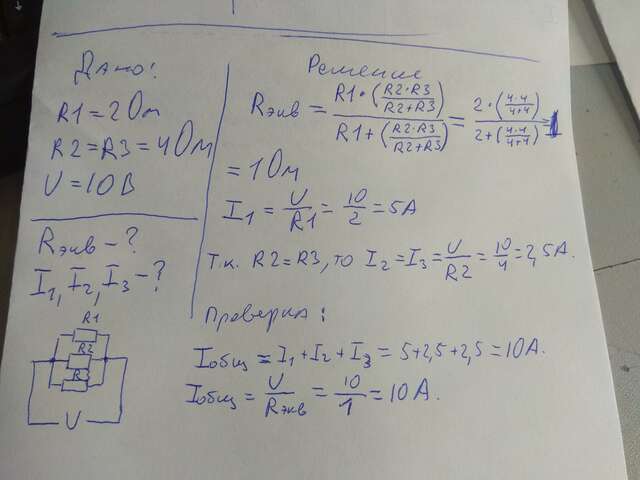 Дано:
R1 = 2 Ом
R2 = R3 = 4 Ом
U = 10 В
Rэкв - ?
I1, I2, I3 - ?
R1
R2
R3
U
Решение
Rэкв = R1·(R2·R3/R2+R3) / R1+(R2·R3/R2+R3) = 2·(4·4/4+4) / 2+(4·4/4+4) =
= 1 Ом
I1 = U/R1 = 10/2 = 5А
Т.к. R2 = R3, то I2 = I3 = U/R2 = 10/4 = 2,5А.
Проверка:
Iобщ = I1 + I2 + I3 = 5+2,5+2,5 = 10А.
Iобщ = U/Rэкв = 10/1 = 10А.